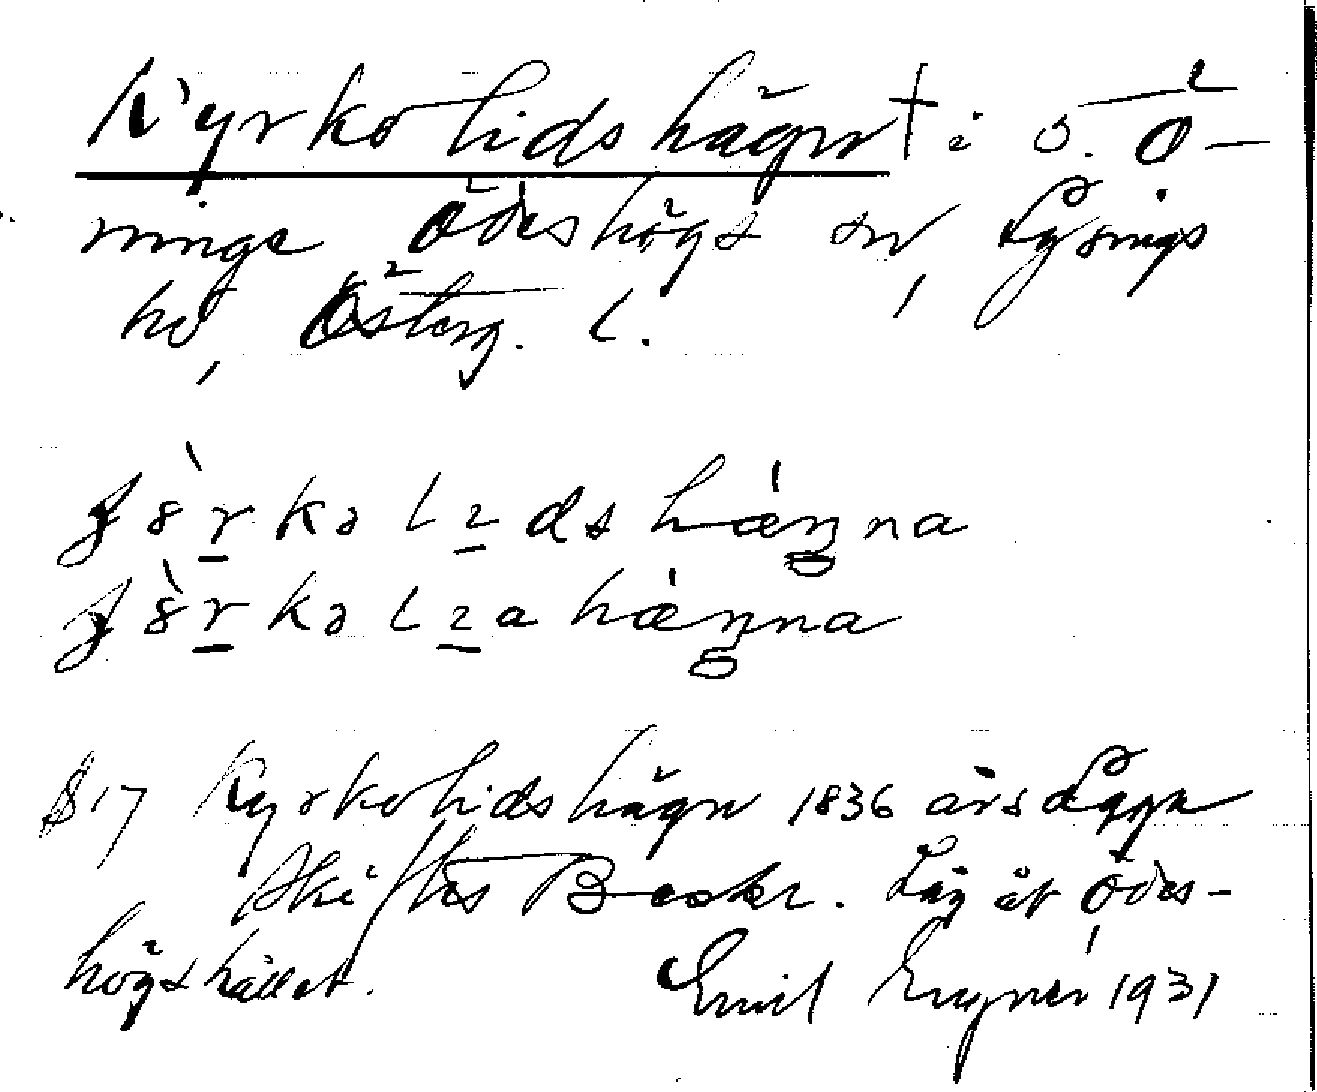 Kyrkolidshägn † i ö. Ö-
ninge Ödeshögs sn, Lysings
hd, Österg. l.
hægna
hægna
§ 17 Kyrkolidshägn 1836 års Laga
Skiftes Beskr. Låg åt Ödes-
högshållet. Emil 1931